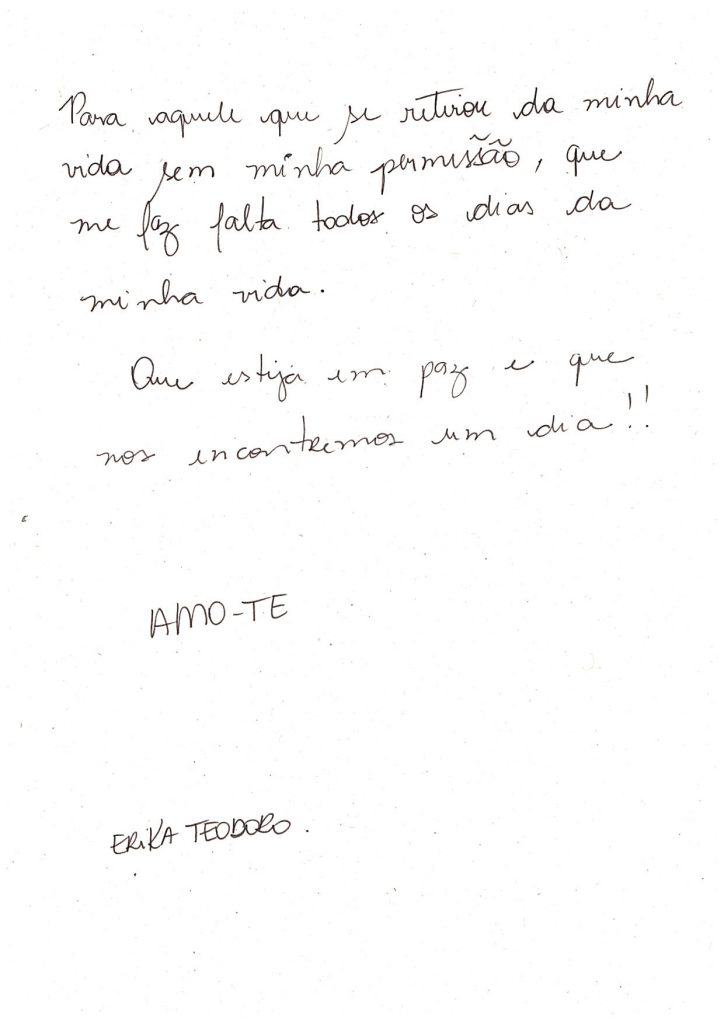 Para aquele que se retirou da minha
vida sem minha permissão, que
me faz falta todos os dias da
minha vida.
Que esteja em paz e que
nos encontremos um dia!!
AMO-TE
ERIKA TEODORO.